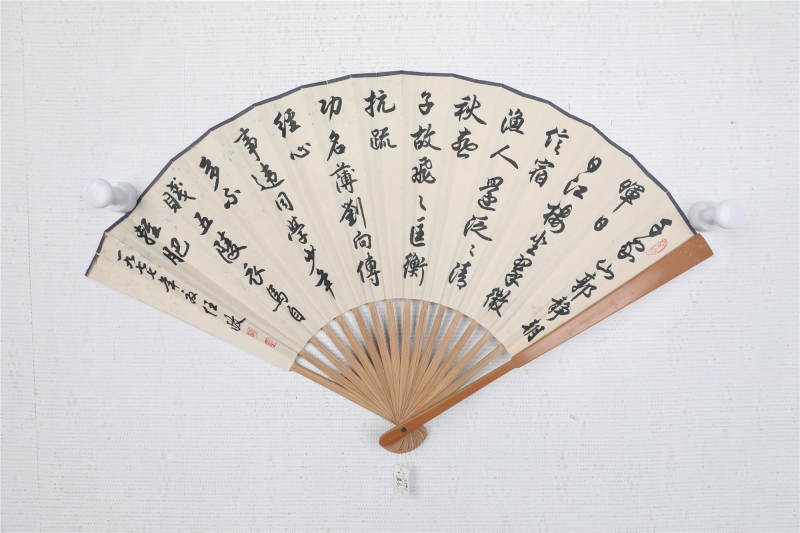 千家山郭静朝
暉日
日江楼坐翠微
信宿
漁人還泛〻清
秋燕
子故飛〻匡衡
抗疏
功名薄劉向傳
經心
事違同學少年
多不
賤五陵衣馬自
輕肥
一九七年任政